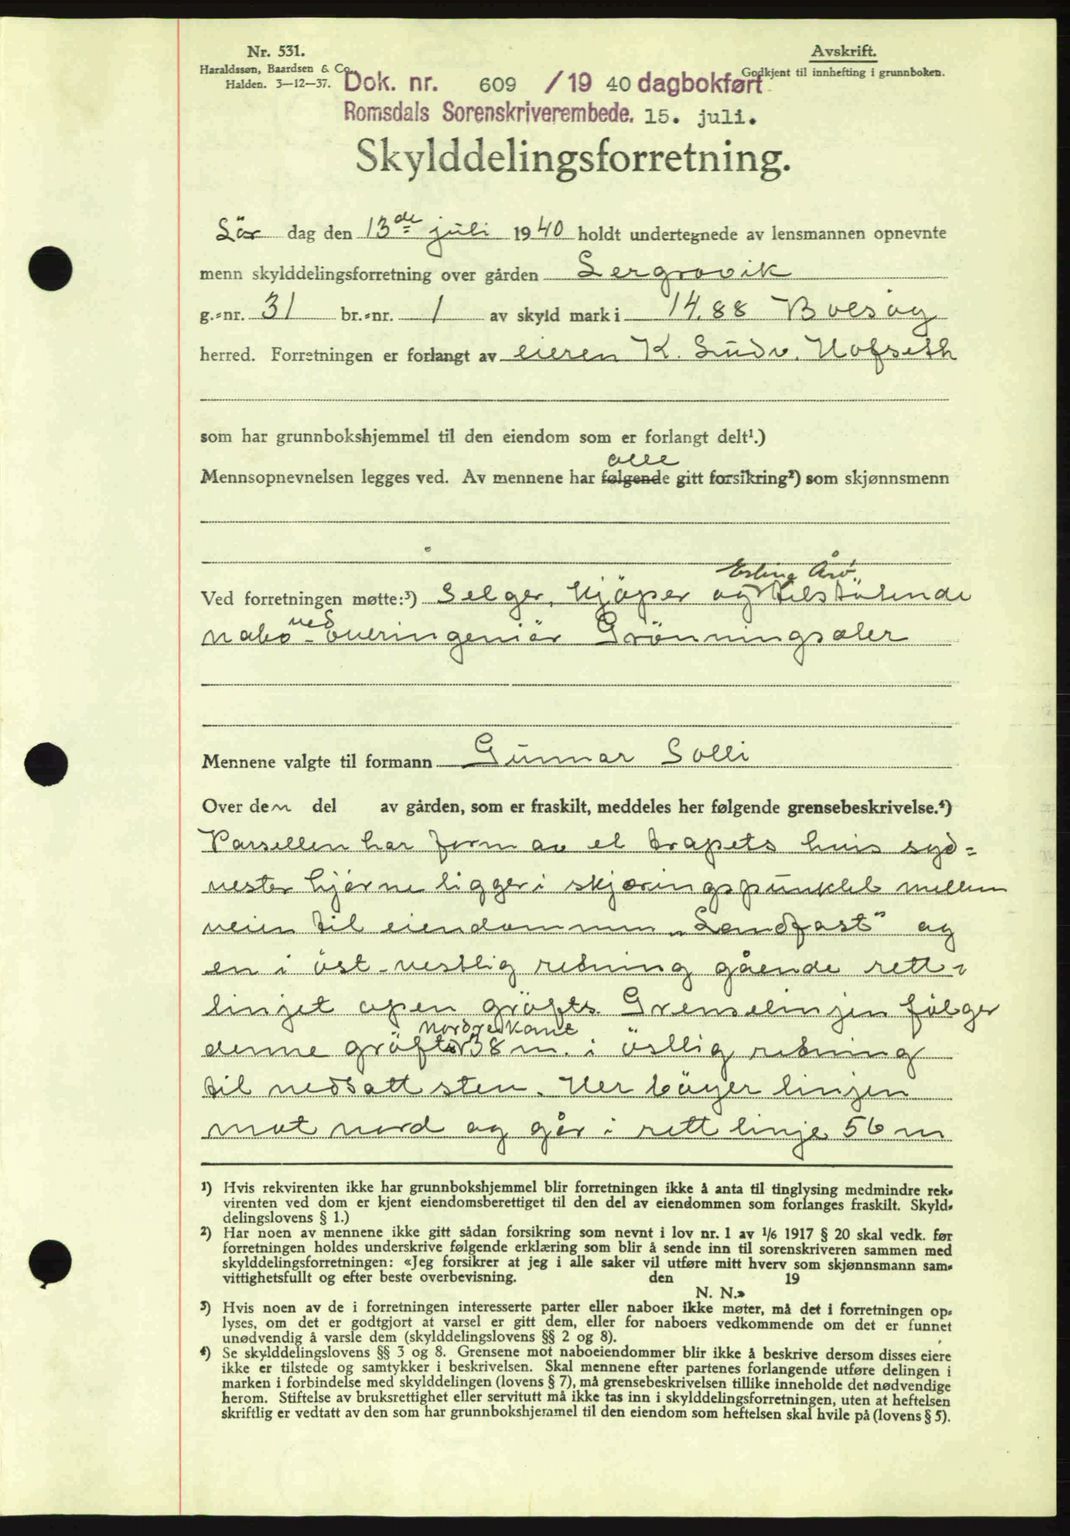 Nr. 531.
Haraldssøn, Baardsen & Co.
Halden. 3—12—37.
Avskrift.
Godkjent til innhefting i grunnboken.
Dok. nr. 609 /19 40 dagbokført
Romsdals Sorenskriverembede. 15. juli.
Skylddelingsforretning.
Lör dag den 13de juli 1940 holdt undertegnede av lensmannen opnevnte
menn skylddelingsforretning over gården Lergrovik
g.-nr. 31 br.-nr. 1 av skyld mark i 14.88 Bolsöy
herred. Forretningen er forlangt av eieren K. Ludv. Hofseth
som har grunnbokshjemmel til den eiendom som er forlangt delt¹.)
alle
Mennsopnevnelsen legges ved. Av mennene har følgende gitt forsikring²) som skjønnsmenn
Erling Årö
Ved forretningen møtte:³) Selger, kjöper og tilstötende
nabo ved overingeniör Grönningsæter
Mennene valgte til formann Gunnar Solli
Over den del av gården, som er fraskilt, meddeles her følgende grensebeskrivelse.⁴)
Parsellen har form av et trapets hvis syd-
vester hjörne ligger i skjæringspunktet mellem
veien til eiendommen „Landfast" og
en i öst-vestlig retning gående rett-
linjet open gröft. Grenselinjen fölger
nordre kant
denne gröfts 38 m. i östlig retning
til nedsatt sten. Her böyer linjen
mot nord og går i rett linje 56 m
¹) Hvis rekvirenten ikke har grunnbokshjemmel blir forretningen ikke å anta til tinglysing medmindre rek-
virenten ved dom er kjent eiendomsberettiget til den del av eiendommen som forlanges fraskilt. Skyld-
delingslovens § 1.)
²) Har noen av mennene ikke gitt sådan forsikring som nevnt i lov nr. 1 av 1/6 1917 § 20 skal vedk. før
forretningen holdes underskrive følgende erklæring som blir å sende inn til sorenskriveren sammen med
skylddelingsforretningen: «Jeg forsikrer at jeg i alle saker vil utføre mitt hverv som skjønnsmann sam-
vittighetsfullt og efter beste overbevisning. den 19
N. N.»
³) Hvis noen av de i forretningen interesserte parter eller naboer ikke møter, må det i forretningen op-
lyses, om det er godtgjort at varsel er gitt dem, eller for naboers vedkommende om det er funnet
unødvendig å varsle dem (skylddelingslovens §§ 2 og 8).
⁴) Se skylddelingslovens §§ 3 og 8. Grensene mot naboeiendommer blir ikke å beskrive dersom disses eiere
ikke er tilstede og samtykker i beskrivelsen. Skal mennene efter partenes forlangende utføre delingen i
marken i forbindelse med skylddelingen (lovens § 7), må grensebeskrivelsen tillike inneholde det nødvendige
herom. Stiftelse av bruksrettighet eller servitutt må ikke tas inn i skylddelingsforretningen, uten at heftelsen
skriftlig er vedtatt av den som har grunnbokshjemmel til den eiendom som heftelsen skal hvile på (lovens § 5).